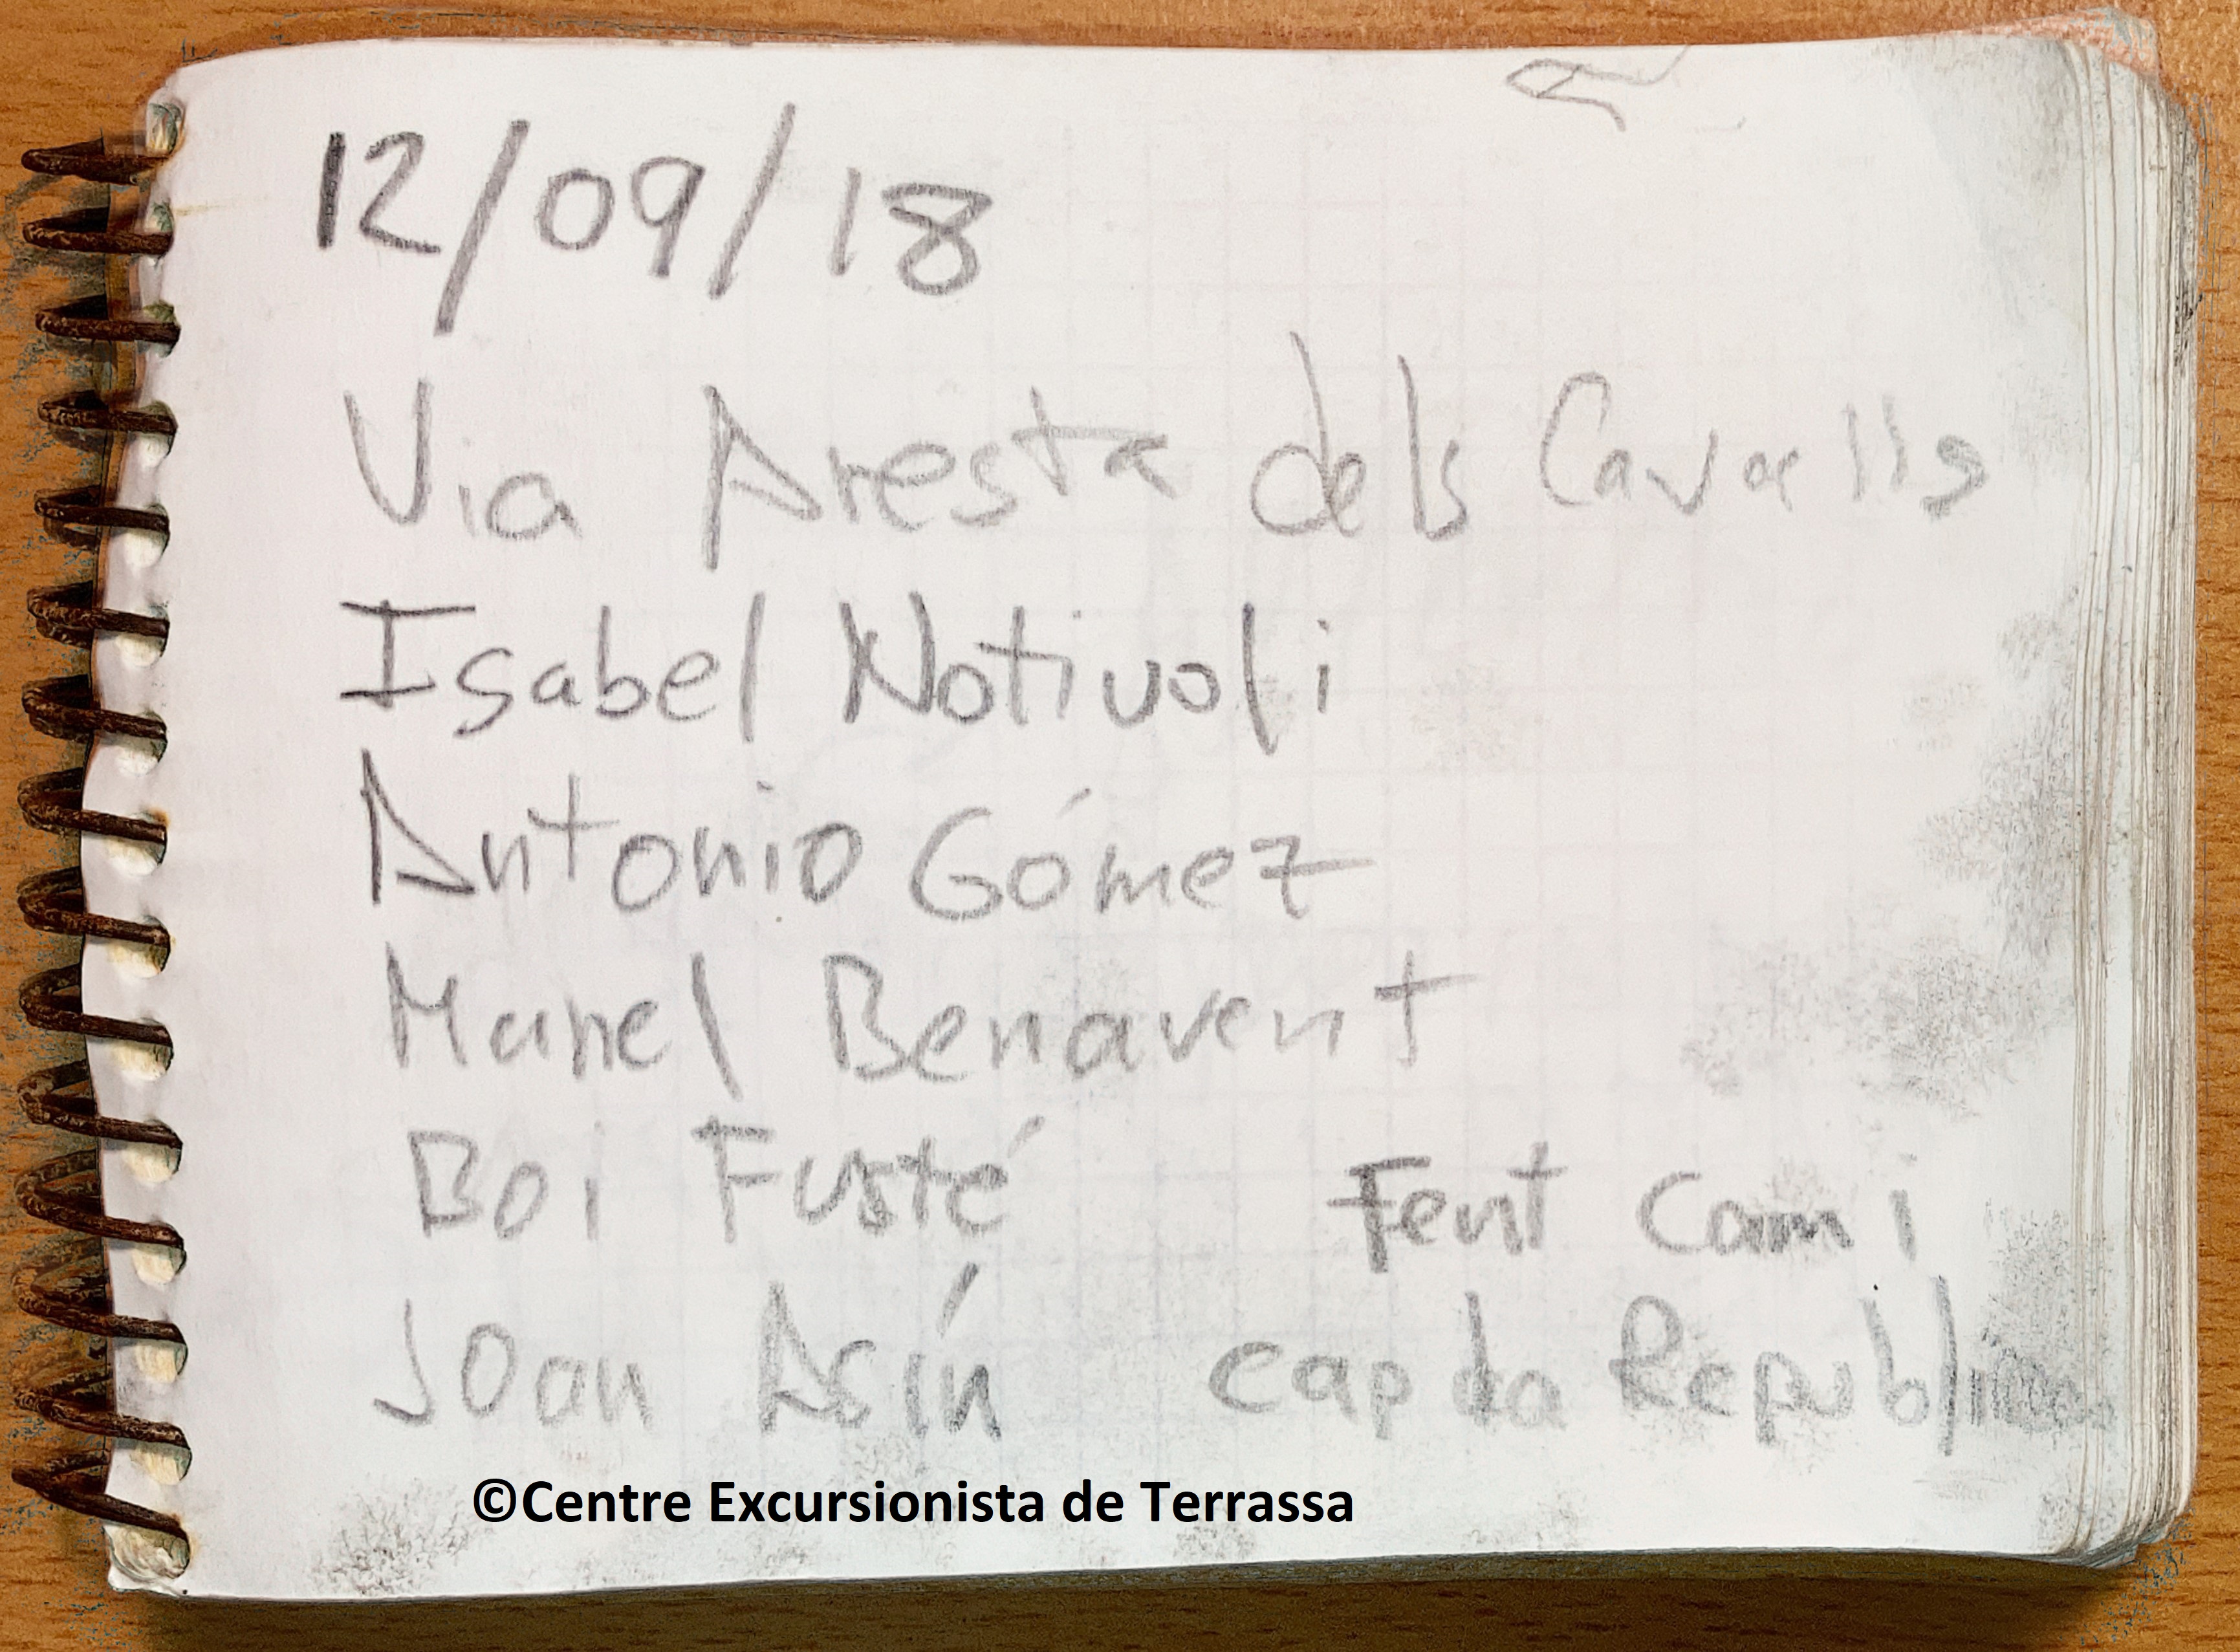 12/09/18
Via Aresta dels Cavalls
Isabel Notivoli
Antonio Gómez
Manel Benavent
Boi Fusté
Fent Cami
Joan Asín
cap la
©Centre Excursionista de Terrassa